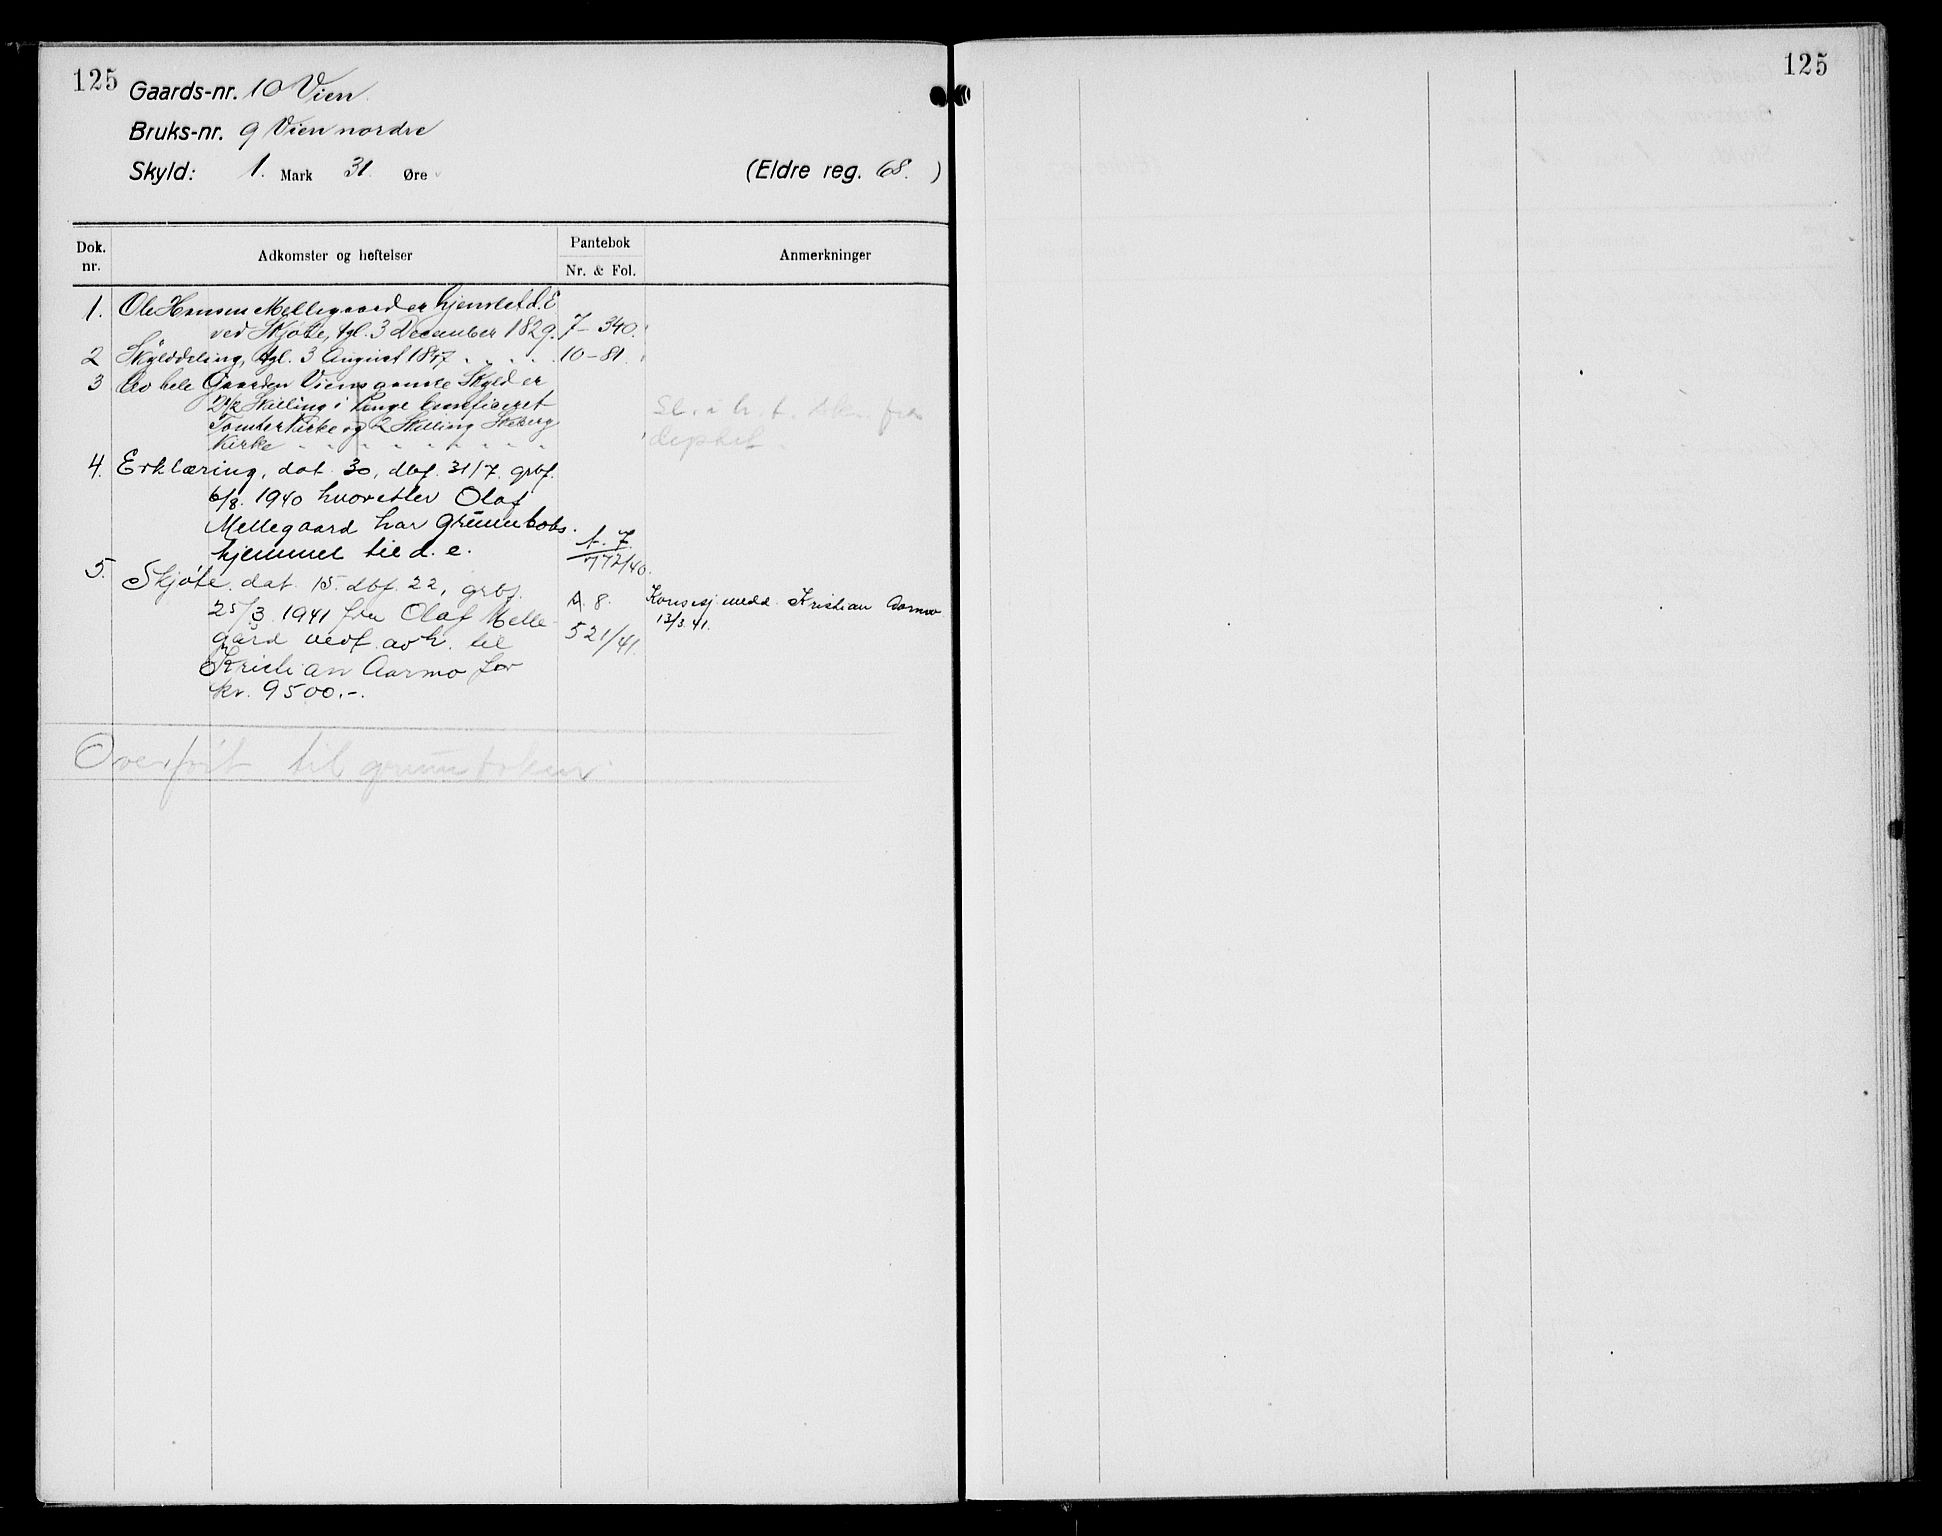 125
Gaards-nr. 10 Vien
Bruks-nr. 9 Vien nordre
Skyld: 1. Mark 31. Øre
(Eldre reg. 68. )
Dok. nr.
Adkomster og heftelser
Pantebok
Nr. & Fol.
Anmerkninger
1. Ole Hansen Mellegaard er hjemlet d. E
ved Skjøte, tgl. 3 December 1829. 7 – 340.
2 Skylddeling, tgl. 3 August 1847 10 – 81.
3 Av hele Gaarden Viens gamle Skyld er
2 1/2 Skilling i Penge beneficeret
Tomter Kirke og 2 Skilling Skeberg
Kirke
deptet
4. Erklæring, dat. 30, dbf. 31/7. grbf.
6/8. 1940 hvoretter Olaf
Mellegaard har grunnboks-
hjemmel til d. e. A. 7. 772/40.
5. Skjøte, dat. 15. dbf. 22, grbf.
25/3 1941 fra Olaf Melle-
gård vedf. avh. til
Kristian Aarmo for
kr. 9500.-.
A. 8.
521/41.
Konsesj. medd. Kristian Aarmo
13/3.41.
Overført til grunnboken
125